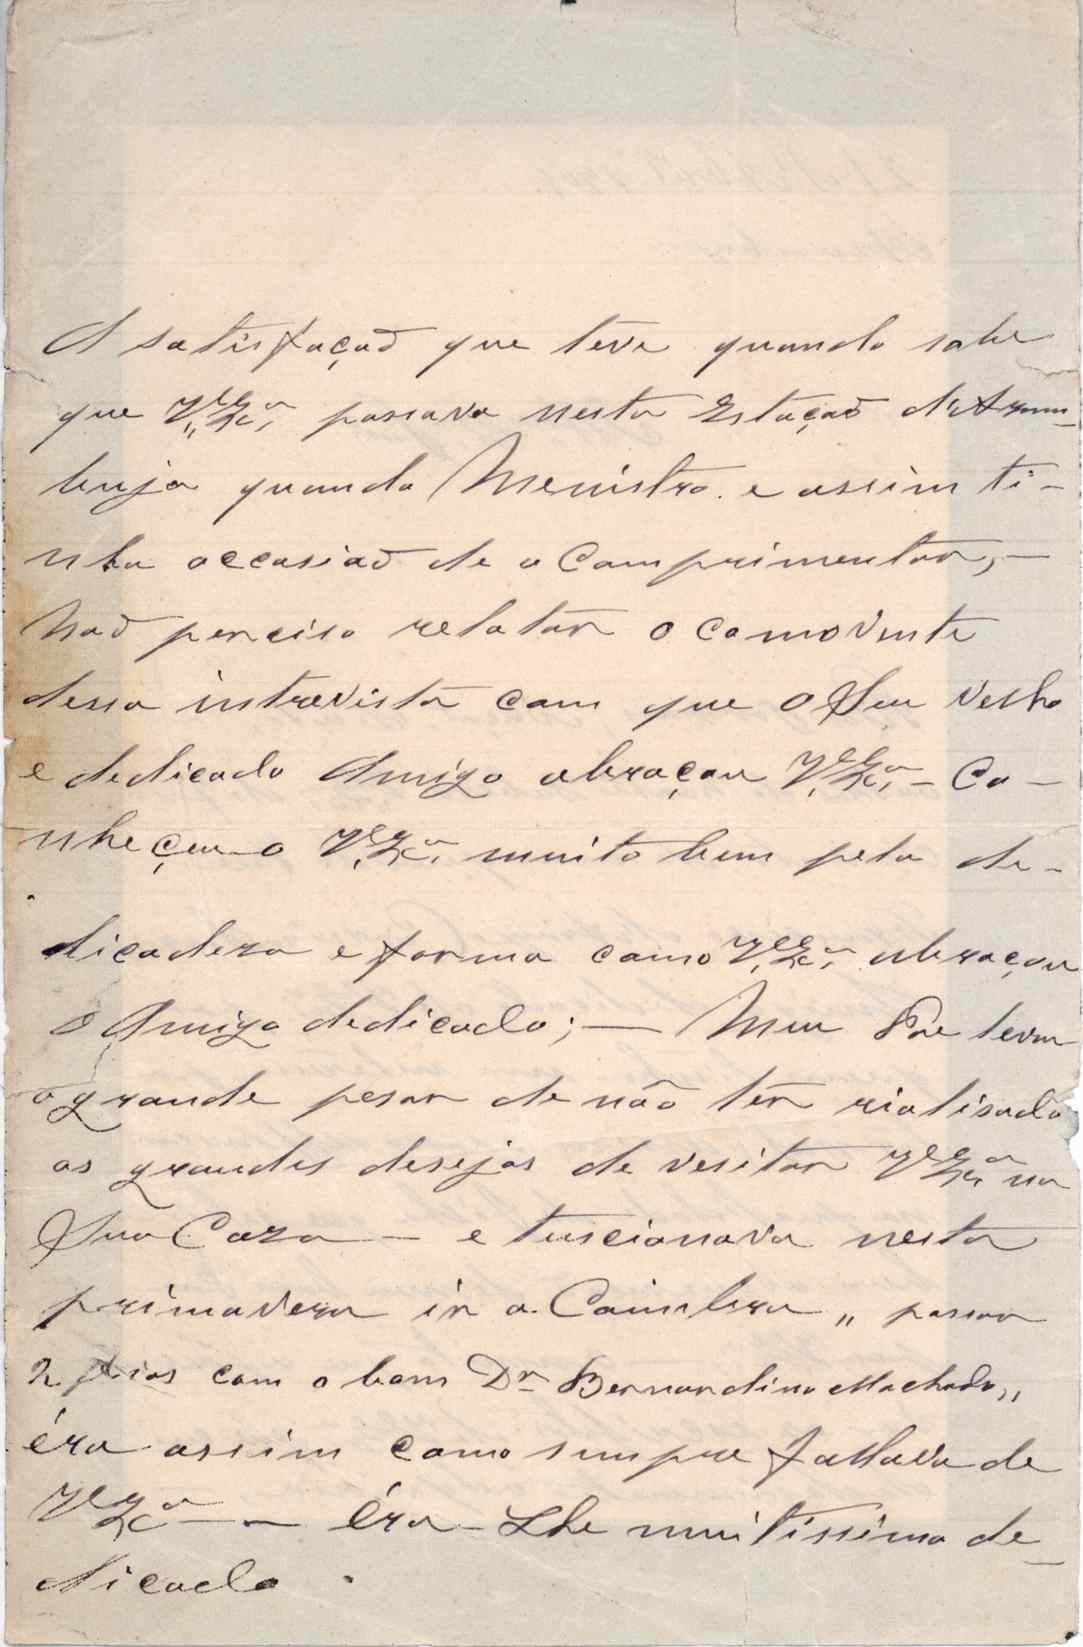 A satisfaçaõ que teve quando sabe
que V.Exa. passava nesta Estaçaõ d'Azam-
buja quando Menistro. e assim ti-
nha occasiaõ de o Comprimentar, —
Naõ perciso relatar o comovente
dessa intrevista com que o Seu velho
e dedicado Amigo abraçou V.Exa. — Co-
nheçeu-o V.Exa. muito bem pela de-
dicadeza e forma como V.Exa. abraçou
o Amigo dedicado; — Meu Pae levou
o grande pesar de não têr rialisado
os grandes desejos de vesitar V.Exa. na
Sua Caza — e tuscionava nesta
primavera ir a Coimbra „ passar
2 dias com o bom Dr. Bernardino Machado „
éra assim como sempre fallava de
V.Exa. — Éra-Lhe muitissimo de-
dicado.